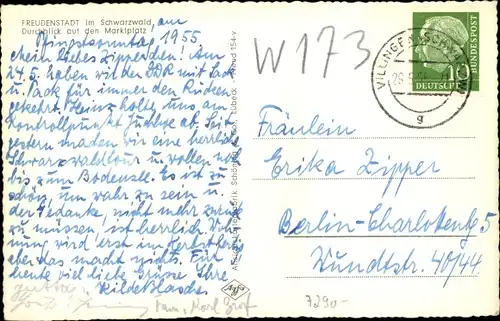 FREUDENSTADT im Schwarzwald,
Durchblick auf den Marktplatz
am
Pfingstsonntag 1955
Mein liebes Zipperchen! Am
24.5. haben wir der DDR mit Sack
u. Pack für immer den Rücken
gekehrt. Heinz holte uns am
Kontrollpunkt ab. Seit
gestern machen wir eine herrliche
Schwarzwaldtour u. wollen noch
bis zum Bodensee. Es ist zu
schön, um wahr zu sein u.
der Gedanke, nicht mehr zurück
zu müssen, ist herrlich. Woh-
nung wird erst im Herbst frei
aber das macht nichts. Für
heute viel liebe Grüße Ihre
Hilde
W173
VILLINGEN (SCHWARZW)
g
10
DEUTSCHE
BUNDESPOST
Fräulein
Erika Zipper
Berlin-Charlottenbg 5
Wundtstr. 40/44
Agfa
7290-